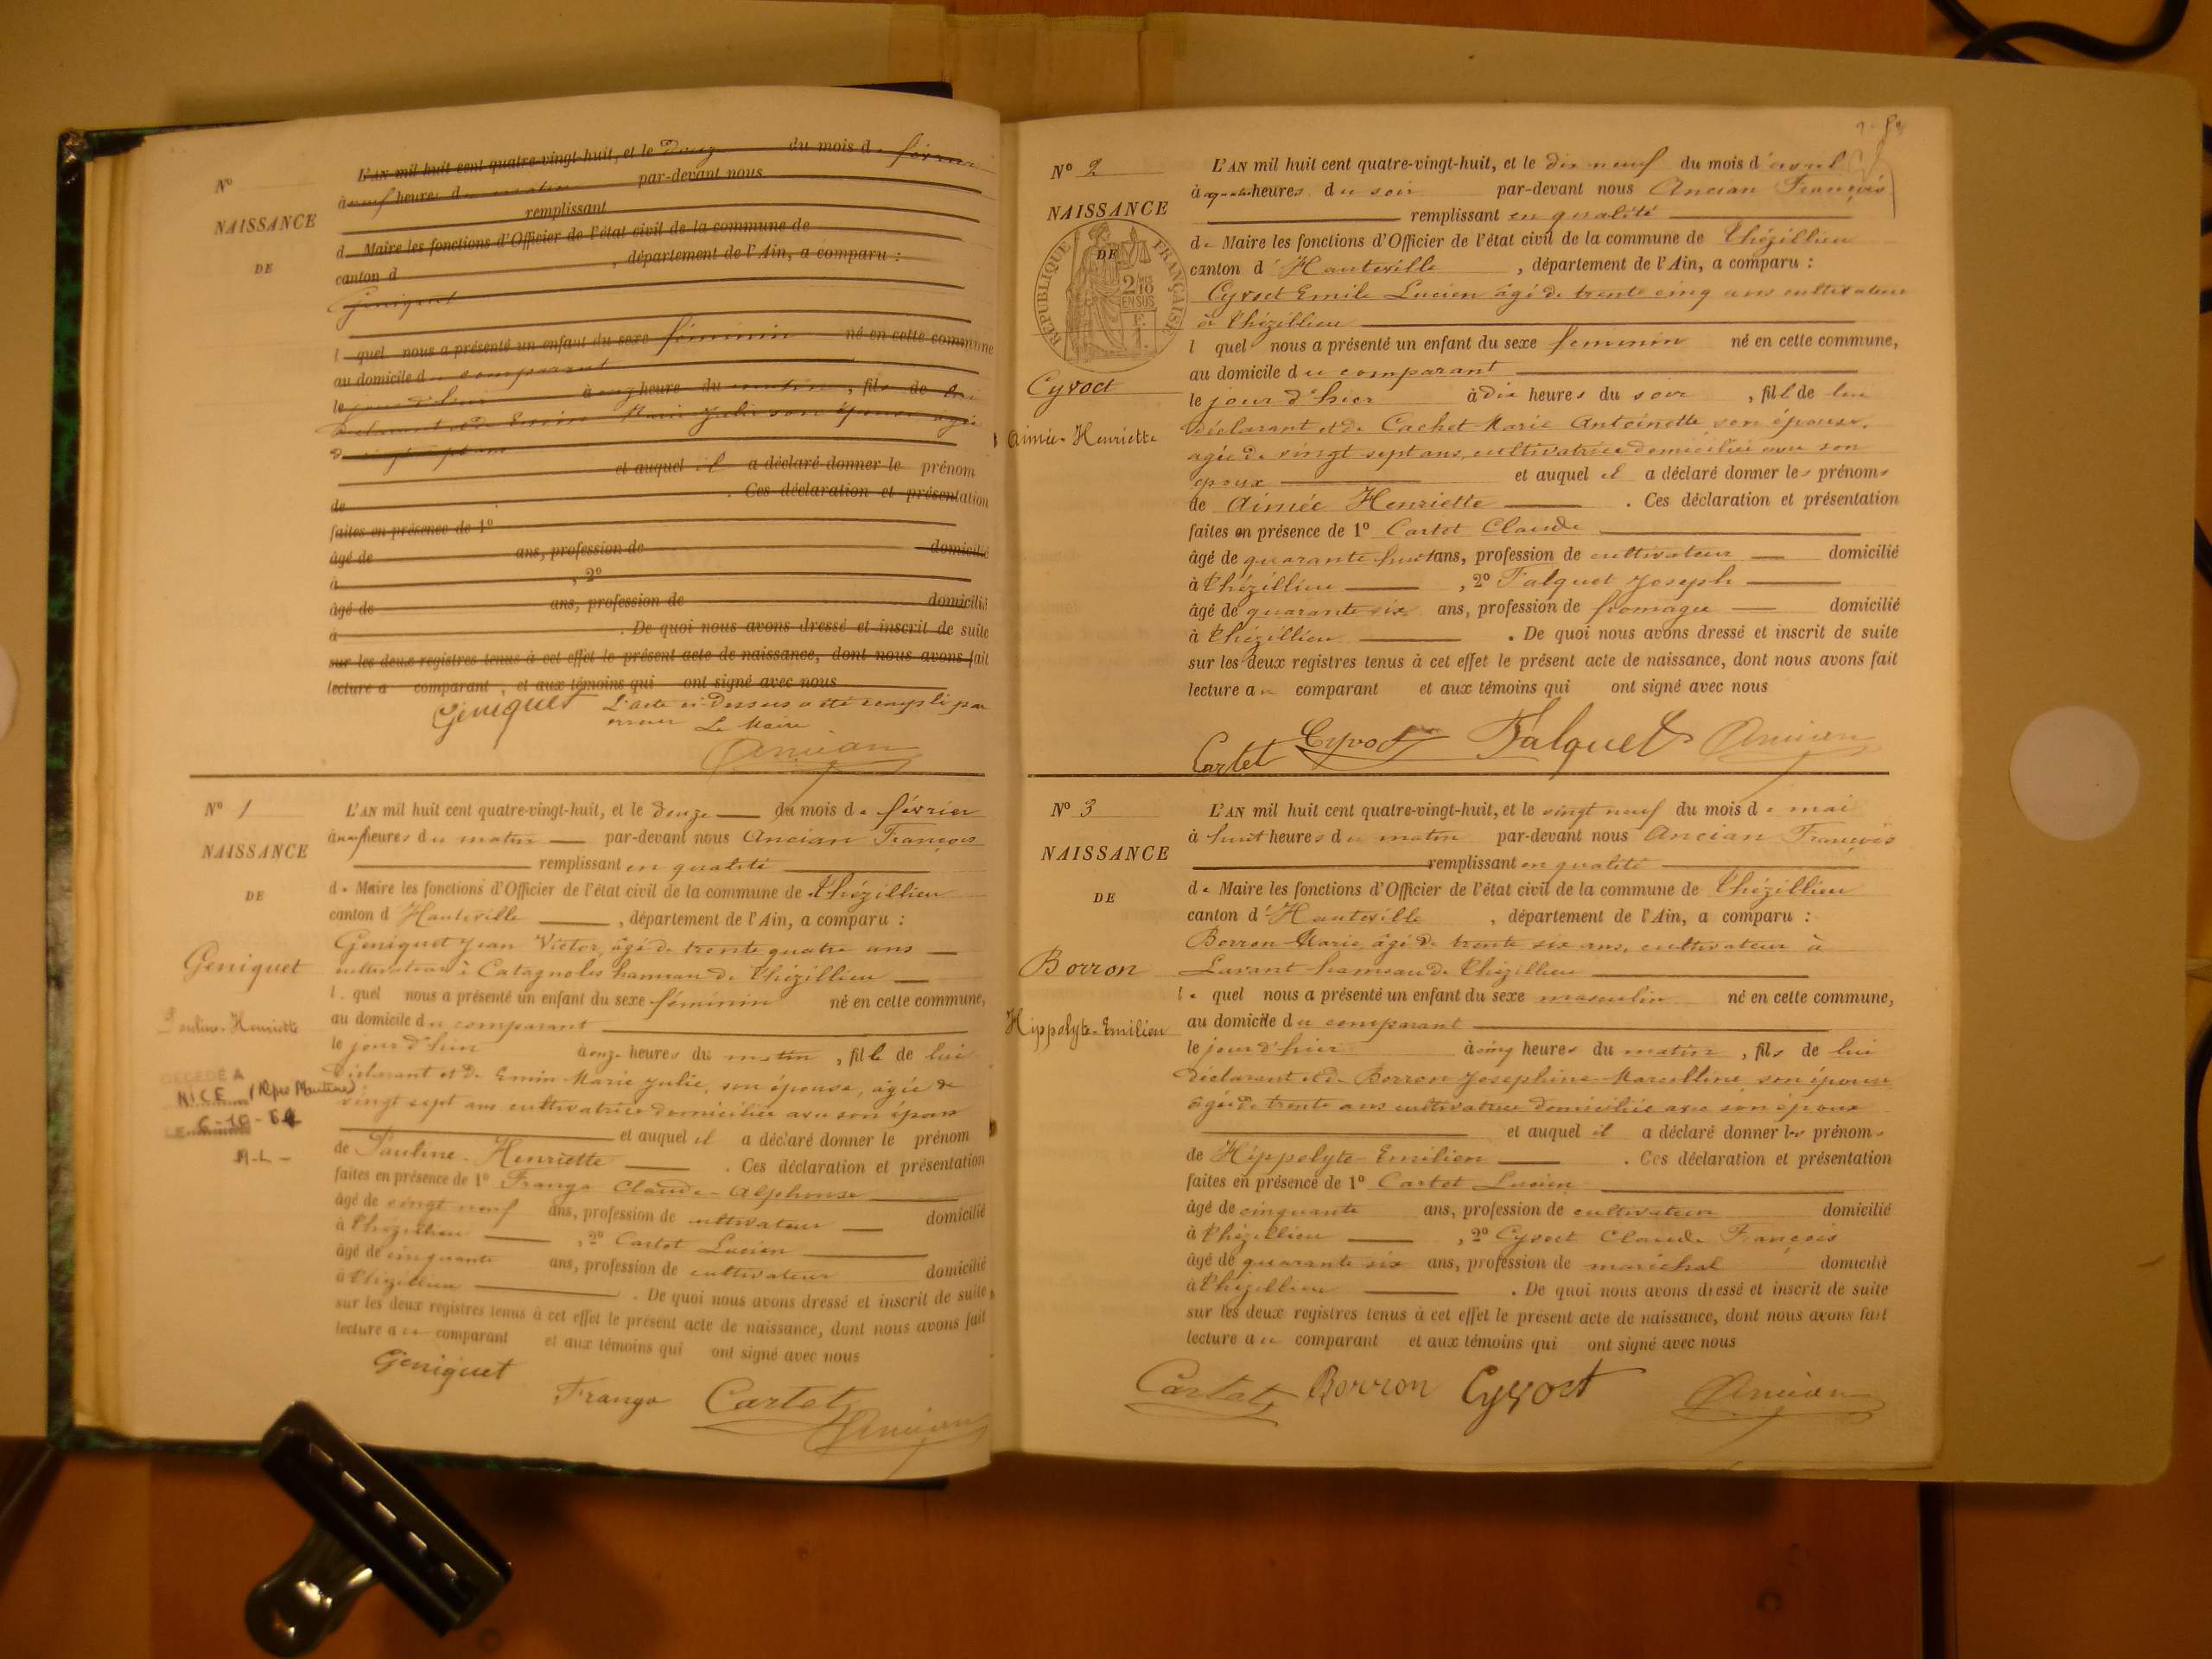 N°
NAISSANCE
DE
L'AN mil huit cent quatre-vingt-huit, et le douze du mois de février
à neuf heures du matin par-devant nous
remplissant
de Maire les fonctions d'Officier de l'état civil de la commune de
canton d , département de l'Ain, a comparu :
Geniquet
l quel nous a présenté un enfant du sexe féminin né en cette commune
au domicile du comparant
le jour d'hier à onze heure du matin , fils de lui
déclarant et de Emin Marie Julie son épouse agée
de vingt sept ans
et auquel il a déclaré donner le prénom
de . Ces déclaration et présentation
faites en présence de 1°
âgé de ans, profession de domicilié
à , 2°
âgé de ans, profession de domicilié
à . De quoi nous avons dressé et inscrit de suite
sur les deux registres tenus à cet effet le présent acte de naissance, dont nous avons fait
lecture a comparant , et aux témoins qui ont signé avec nous
Geniquet L'acte ci-dessus a été rempli par
erreur Le Maire
Ancian
N° 1
NAISSANCE
DE
Geniquet
Pauline-Henriette
DÉCÉDÉ A
NICE (Alpes Maritimes)
LE 6-10-64
L'AN mil huit cent quatre-vingt-huit, et le douze du mois de février
à neuf heures du matin par-devant nous Ancian François
remplissant en qualité
de Maire les fonctions d'Officier de l'état civil de la commune de Thézillieu
canton d'Hauteville , département de l'Ain, a comparu :
Geniquet Jean Victor, âgé de trente quatre ans
cultivateur à Catagnolès hameau de Thézillieu
l. quel nous a présenté un enfant du sexe féminin né en cette commune,
au domicile du comparant
le jour d'hier à onze heures du matin , fille de lui
déclarant et de Emin Marie Julie, son épouse, agée de
vingt sept ans cultivatrice domiciliée avec son époux
et auquel il a déclaré donner le prénom
de Pauline-Henriette . Ces déclaration et présentation
faites en présence de 1° Franga Claude-Alphonse
âgé de vingt neuf ans, profession de cultivateur domicilié
à Thézillieu , 2° Cartet Lucien
âgé de cinquante ans, profession de cultivateur domicilié
à Thézillieu . De quoi nous avons dressé et inscrit de suite
sur les deux registres tenus à cet effet le présent acte de naissance, dont nous avons fait
lecture au comparant et aux témoins qui ont signé avec nous
Geniquet
Franga Cartet
Ancian
N° 2
NAISSANCE
DE
RÉPUBLIQUE FRANÇAISE
2/10 EN SUS
Cyvoct
Aimée-Henriette
L'AN mil huit cent quatre-vingt-huit, et le dix neuf du mois d'avril
à quatre heures du soir par-devant nous Ancian François
remplissant en qualité
de Maire les fonctions d'Officier de l'état civil de la commune de Thézillieu
canton d'Hauteville , département de l'Ain, a comparu :
Cyvoct Emile Lucien âgé de trente cinq ans cultivateur
à Thézillieu
l quel nous a présenté un enfant du sexe féminin né en cette commune,
au domicile du comparant
le jour d'hier à dix heures du soir , fille de lui
déclarant et de Cachet Marie Antoinette son épouse,
agée de vingt sept ans, cultivatrice domiciliée avec son
époux et auquel il a déclaré donner les prénoms
de Aimée Henriette . Ces déclaration et présentation
faites en présence de 1° Cartet Claude
âgé de quarante huit ans, profession de cultivateur domicilié
à Thézillieu , 2° Falquet Joseph
âgé de quarante six ans, profession de fromager domicilié
à Thézillieu . De quoi nous avons dressé et inscrit de suite
sur les deux registres tenus à cet effet le présent acte de naissance, dont nous avons fait
lecture au comparant et aux témoins qui ont signé avec nous
Cartet Cyvoct Falquet Ancian
N° 3
NAISSANCE
DE
Borron
Hippolyte-Emilien
L'AN mil huit cent quatre-vingt-huit, et le vingt neuf du mois de mai
à huit heures du matin par-devant nous Ancian François
remplissant en qualité
de Maire les fonctions d'Officier de l'état civil de la commune de Thézillieu
canton d'Hauteville , département de l'Ain, a comparu :
Borron Marie, âgé de trente six ans, cultivateur à
Lavant hameau de Thézillieu
le quel nous a présenté un enfant du sexe masculin né en cette commune,
au domicile du comparant
le jour d'hier à cinq heures du matin , fils de lui
déclarant et de Borron Josephine Marcelline son épouse
agée de trente ans cultivatrice domiciliée avec son époux
et auquel il a déclaré donner les prénoms
de Hippolyte Emilien . Ces déclaration et présentation
faites en présence de 1° Cartet Lucien
âgé de cinquante ans, profession de cultivateur domicilié
à Thézillieu , 2° Cyvoct Claude François
âgé de quarante six ans, profession de maréchal domicilié
à Thézillieu . De quoi nous avons dressé et inscrit de suite
sur les deux registres tenus à cet effet le présent acte de naissance, dont nous avons fait
lecture au comparant et aux témoins qui ont signé avec nous
Cartet Borron Cyvoct Ancian